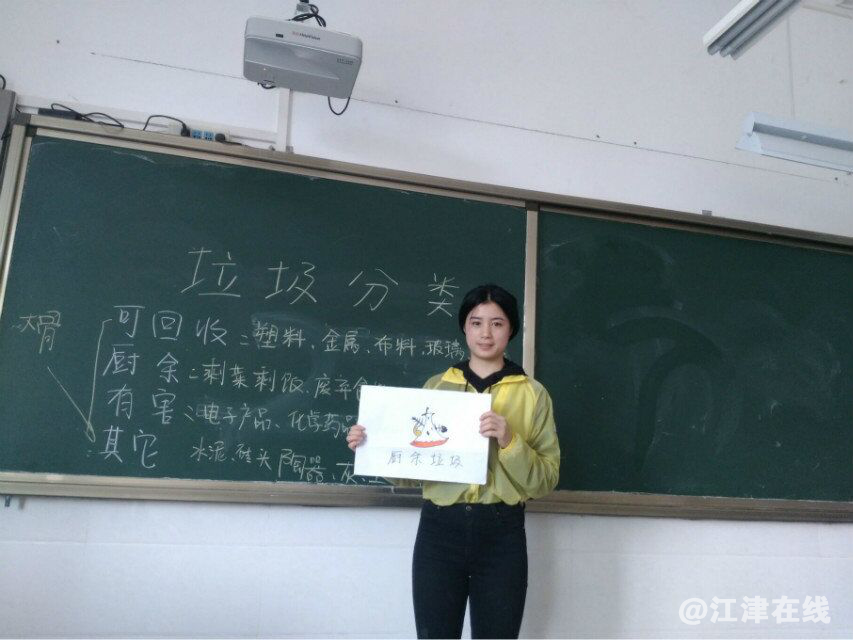 垃圾分类
大骨
可回收：塑料、金属、布料、玻璃
厨余：剩菜剩饭、废弃食
有害：电子产品、化学药品
其它 水泥、砖头、陶器、灰
厨余垃圾
@江津在线